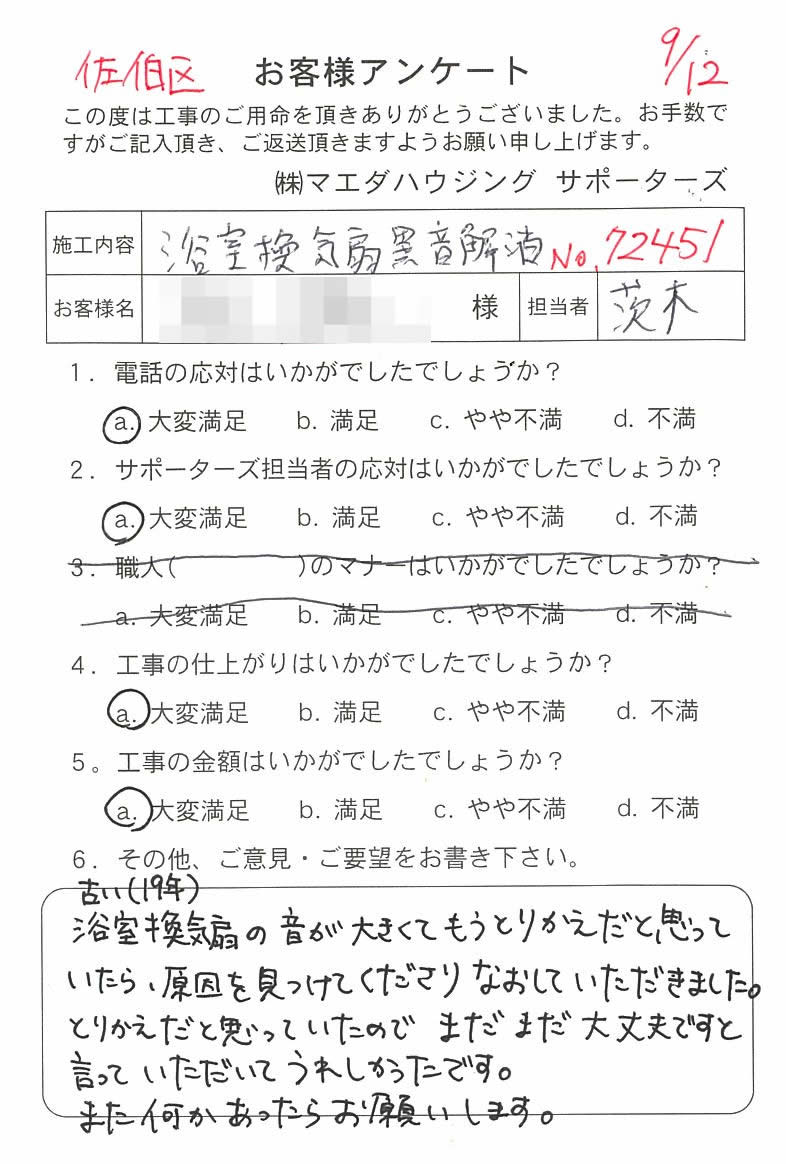 佐伯区 お客様アンケート 9/12
この度は工事のご用命を頂きありがとうございました。お手数で
すがご記入頂き、ご返送頂きますようお願い申し上げます。
㈱マエダハウジング サポーターズ
施工内容 浴室換気扇異音解消 No.72451
お客様名 様 担当者 茨木
1. 電話の応対はいかがでしたでしょうか?
a. 大変満足 b. 満足 c. やや不満 d. 不満
2. サポーターズ担当者の応対はいかがでしたでしょうか?
a. 大変満足 b. 満足 c. やや不満 d. 不満
3. 職人( )のマナーはいかがでしたでしょうか?
a. 大変満足 b. 満足 c. やや不満 d. 不満
4. 工事の仕上がりはいかがでしたでしょうか?
a. 大変満足 b. 満足 c. やや不満 d. 不満
5。工事の金額はいかがでしたでしょうか?
a. 大変満足 b. 満足 c. やや不満 d. 不満
6. その他、ご意見・ご要望をお書き下さい。
古い(19年)
浴室換気扇の音が大きくてもうとりかえだと思って
いたら、原因を見つけてくださりなおしていただきました。
とりかえだと思っていたのでまだまだ大丈夫ですと
言っていただいてうれしかったです。
また何かあったらお願いします。